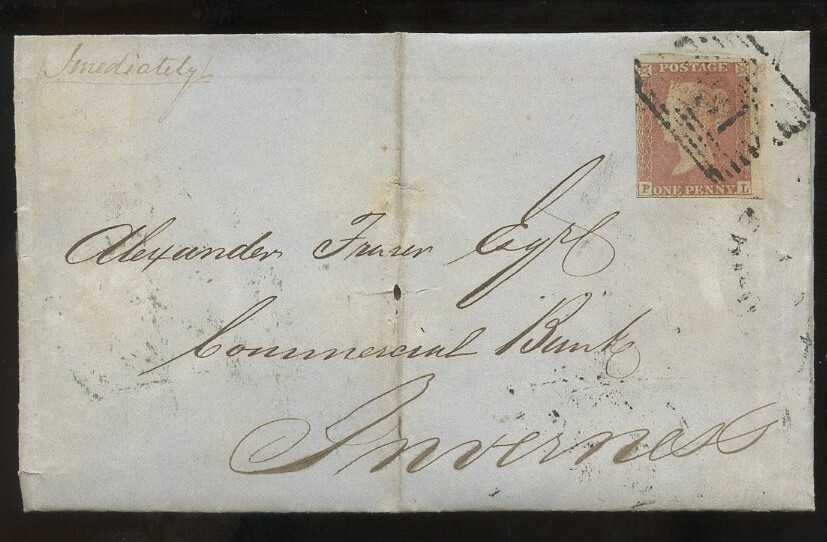 Imediately
POSTAGE
P ONE PENNY L
Alexander Fraser Esqre
Commercial Bank
Inverness